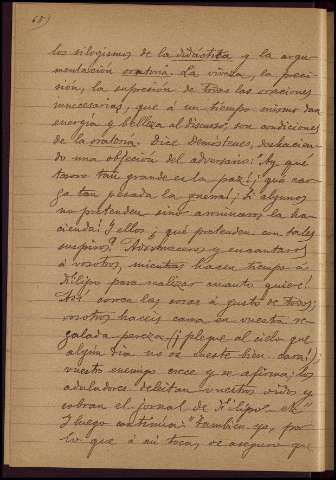 68)
los silogismos de la didáctica y la argu-
mentación oratoria. La viveza, la preci-
sión, la supresión de todas las oraciones
innecesarias, que á un tiempo mismo dan
energía y belleza al discurso, son condiciones
de la oratoria. Dice Demóstenes, deshacien-
do una objeción del adversario: "Ay qué
tesoro tan grande es la paz!; ¡qué car-
ga tan pesada la guerra!; Si algunos
no pretenden sino arruinaros la ha-
cienda! Y ellos ¿qué pretenden con tales
suspiros? Adormeceros y encantaros
á vosotros, mientras hacen tiempo á
Filipo para realizar cuanto quiere!
Así corren las cosas á gusto de todos;
vosotros hacéis cama en vuestra re-
galada pereza, (¡plegue al cielo que
algún día no os cueste bien cara!);
vuestro enemigo crece y se afirma; los
aduladores deleitan vuestros oídos y
cobran el jornal de Filipo" etc
Y luego continúa: "También yo, por
lo que á mí toca, os aseguro que